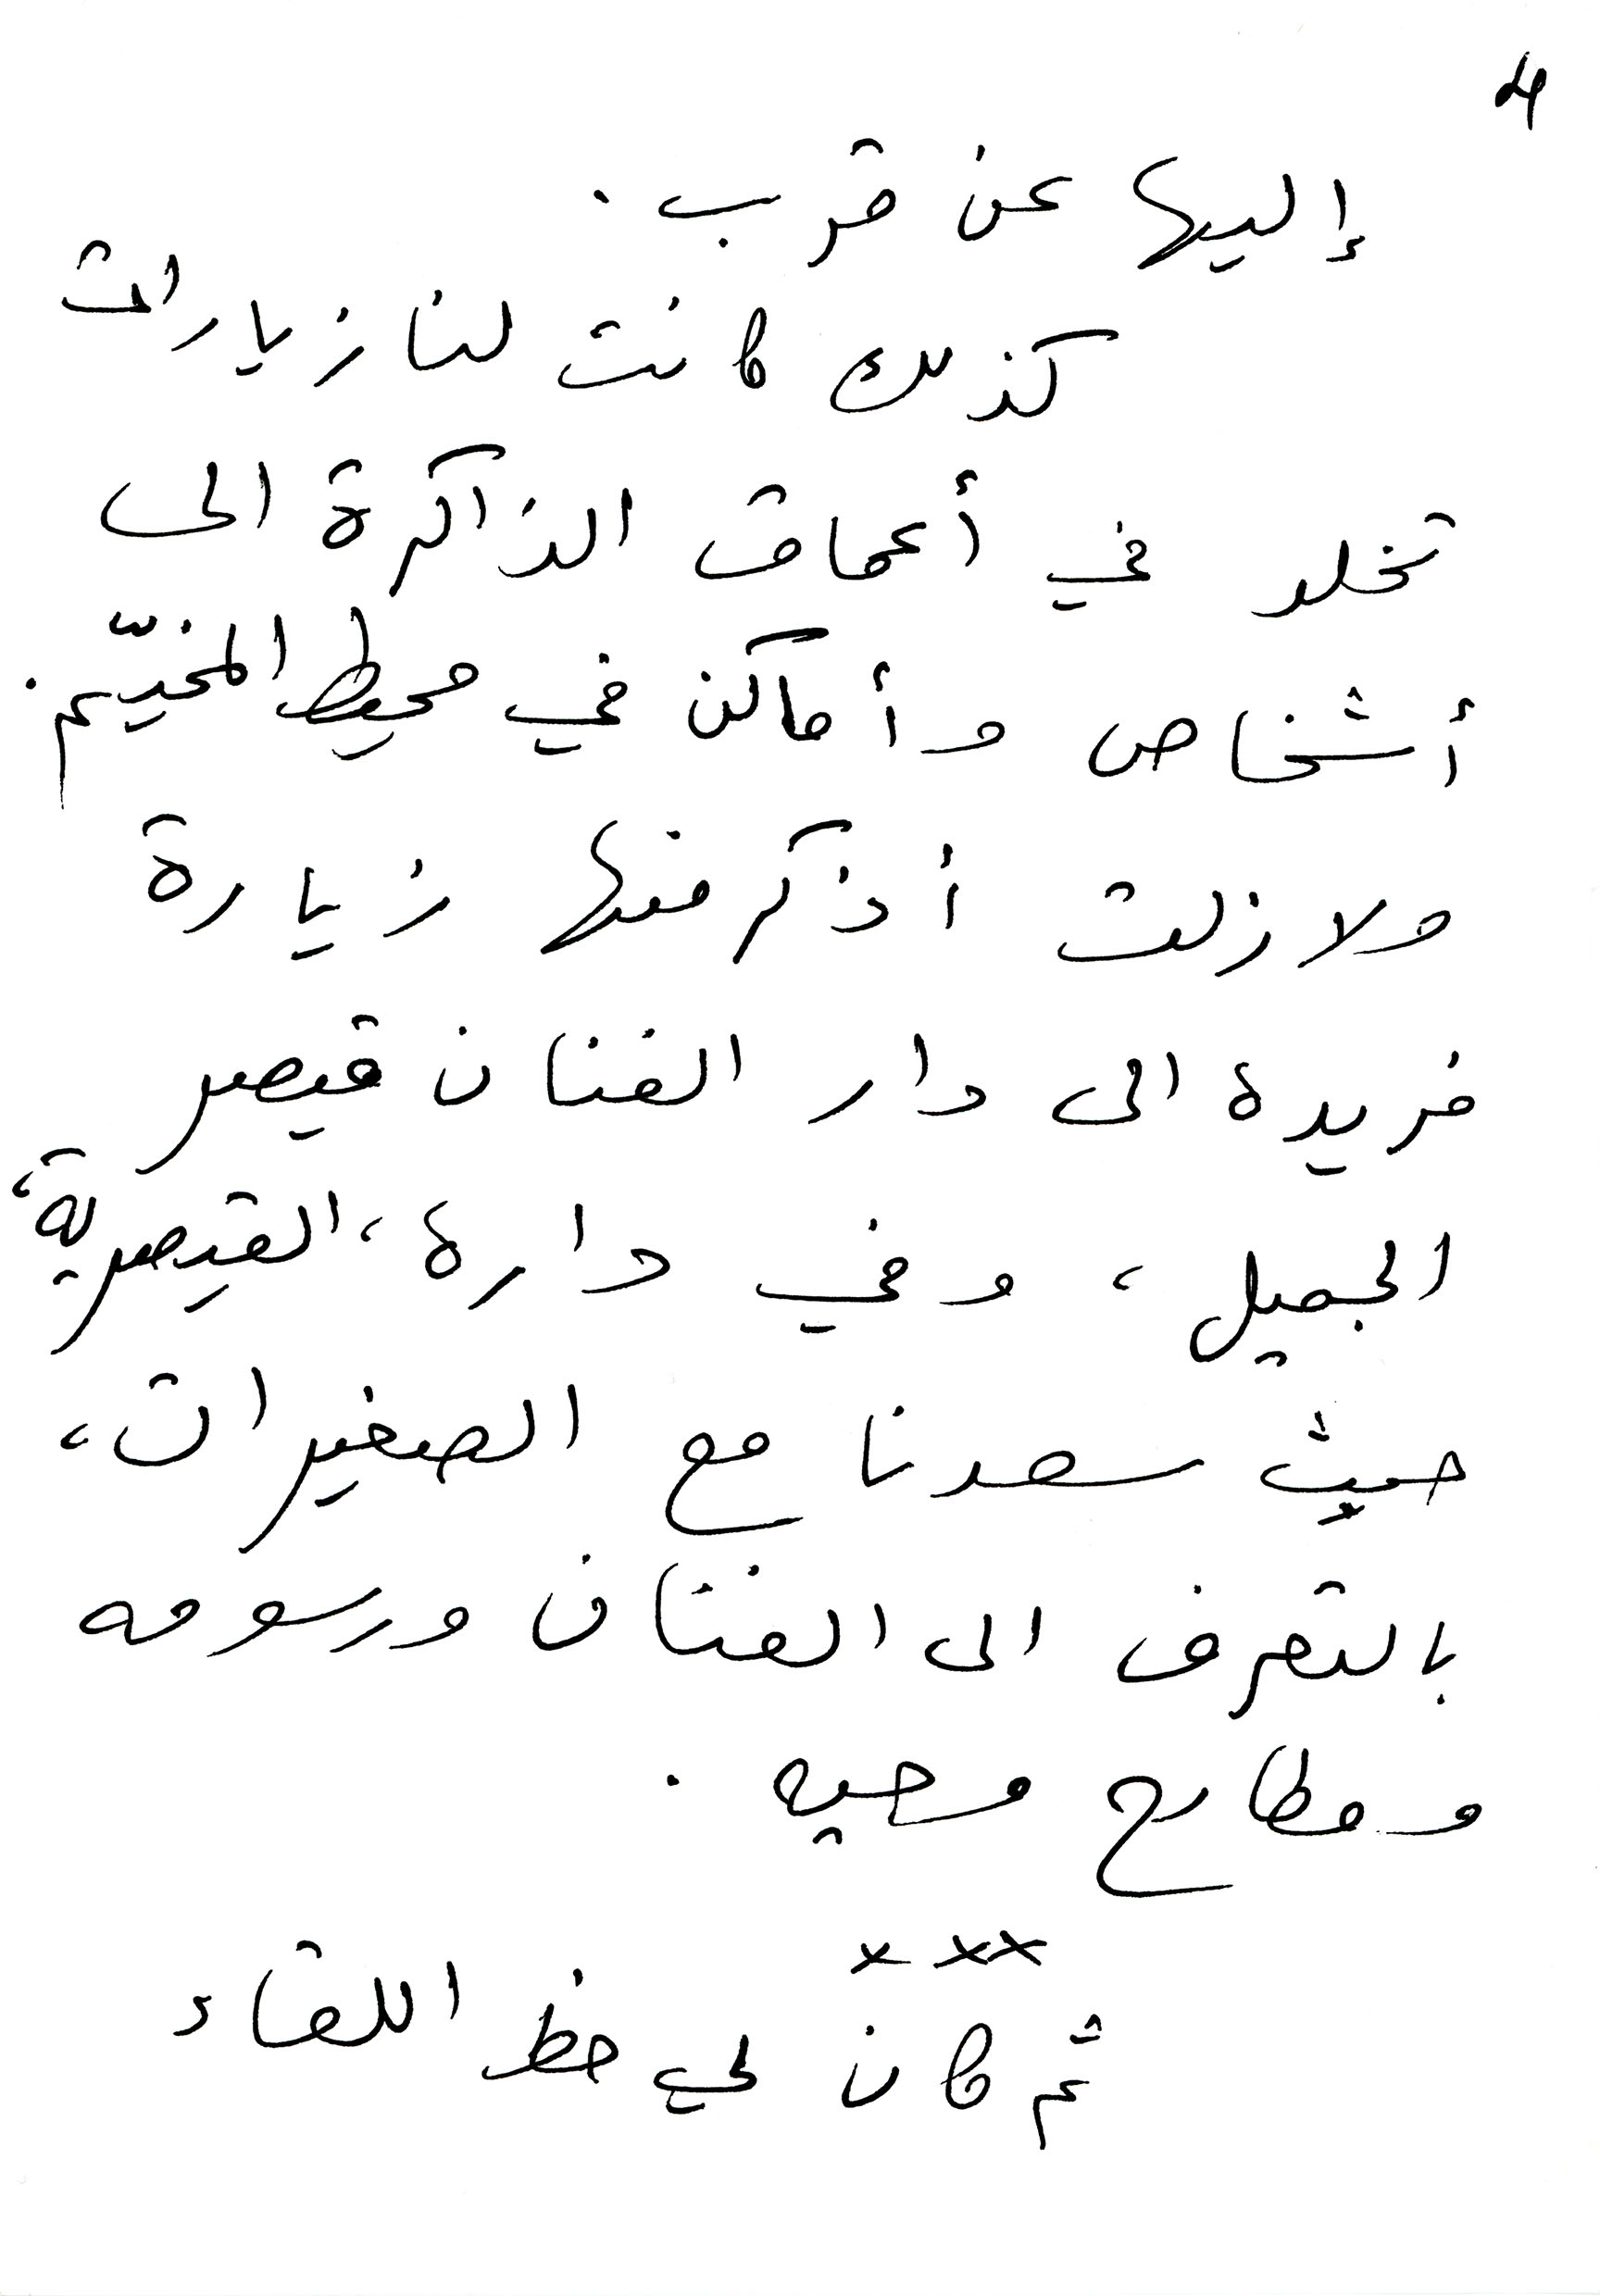 4
إليها عن قرب .
كذلك كانت لنا زيارات
تخلد في أعماق الذاكرة الى
أشخاص و أماكن في محيط المخيّم .
ولا زلت أذكر منها زيارة
فريدة الى دار الفنان قيصر
الجميل ، و في داره ، القيصرية ،
حيث سعدنا مع الصغيرات ،
بالتعرف الى الفنان ورسومه
و مطارح وحيه .
xxx
ثم كان لي حظ اللقاء